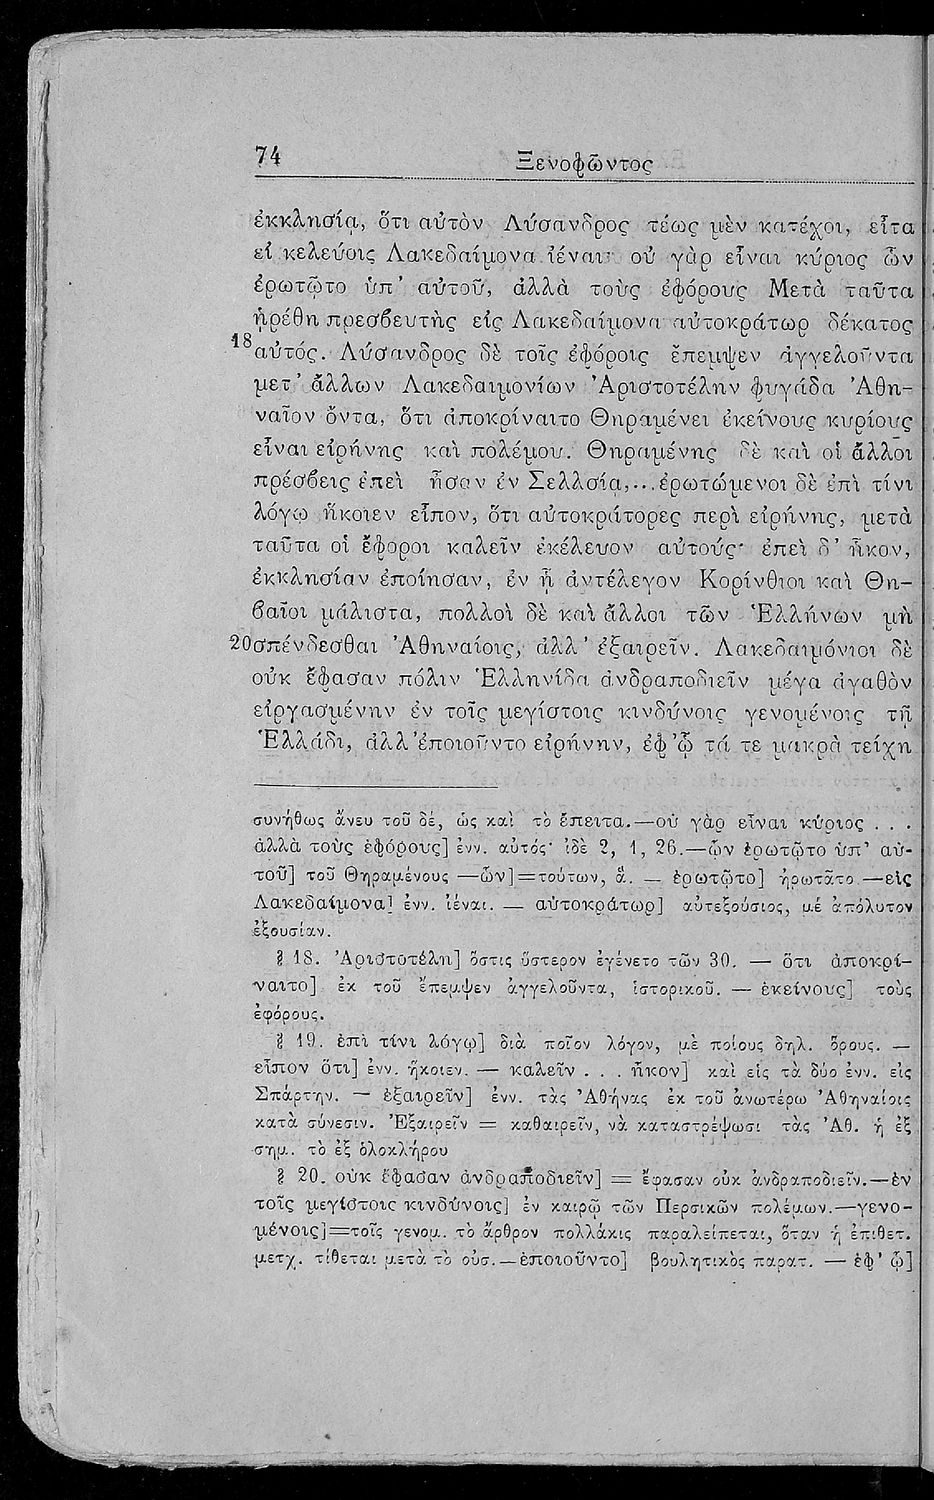 74
Ξενοφῶντος
ἐκκλησίᾳ, ὅτι αὐτὸν Λύσανδρος τέως μὲν κατέχοι, εἶτα
εἰ κελεύοις Λακεδαίμονα ἰέναι· οὐ γὰρ εἶναι κύριος ὧν
ἐρωτῷτο ὑπ' αὐτοῦ, ἀλλὰ τοὺς ἐφόρους Μετὰ ταῦτα
ᾑρέθη πρεσβευτὴς εἰς Λακεδαίμονα αὐτοκράτωρ δέκατος
18 αὐτός. Λύσανδρος δὲ τοῖς ἐφόροις ἔπεμψεν ἀγγελοῦντα
μετ' ἄλλων Λακεδαιμονίων Ἀριστοτέλην φυγάδα Ἀθη-
ναῖον ὄντα, ὅτι ἀποκρίναιτο Θηραμένει ἐκείνους κυρίους
εἶναι εἰρήνης καὶ πολέμου. Θηραμένης δὲ καὶ οἱ ἄλλοι
πρέσβεις ἐπεὶ ἦσαν ἐν Σελλσίᾳ,...ἐρωτώμενοι δὲ ἐπὶ τίνι
λόγῳ ἥκοιεν εἶπον, ὅτι αὐτοκράτορες περὶ εἰρήνης, μετὰ
ταῦτα οἱ ἔφοροι καλεῖν ἐκέλευον αὐτούς· ἐπεὶ δ' ἧκον,
ἐκκλησίαν ἐποίησαν, ἐν ᾗ ἀντέλεγον Κορίνθιοι καὶ Θη-
βαῖοι μάλιστα, πολλοὶ δὲ καὶ ἄλλοι τῶν Ἑλλήνων μὴ
20 σπένδεσθαι Ἀθηναίοις, ἀλλ' ἐξαιρεῖν. Λακεδαιμόνιοι δὲ
οὐκ ἔφασαν πόλιν Ἑλληνίδα ἀνδραποδιεῖν μέγα ἀγαθὸν
εἰργασμένην ἐν τοῖς μεγίστοις κινδύνοις γενομένοις τῇ
Ἑλλάδι, ἀλλ' ἐποιοῦντο εἰρήνην, ἐφ' ᾧ τά τε μακρὰ τείχη
συνήθως ἄνευ τοῦ δέ, ὡς καὶ τὸ ἔπειτα.—οὐ γὰρ εἶναι κύριος . . .
ἀλλὰ τοὺς ἐφόρους] ἐνν. αὐτός· ἰδὲ 2, 1, 26.—ὧν ἐρωτῷτο ὑπ' αὐ-
τοῦ] τοῦ Θηραμένους —ὧν]=τούτων, ἅ. — ἐρωτῷτο] ἠρωτᾶτο.—εἰς
Λακεδαίμονα] ἐνν. ἰέναι. — αὐτοκράτωρ] αὐτεξούσιος, μέ ἀπόλυτον
ἐξουσίαν.
§ 18. Ἀριστοτέλη] ὅστις ὕστερον ἐγένετο τῶν 30. — ὅτι ἀποκρί-
ναιτο] ἐκ τοῦ ἔπεμψεν ἀγγελοῦντα, ἱστορικοῦ. — ἐκείνους] τοὺς
ἐφόρους.
§ 19. ἐπὶ τίνι λόγῳ] διὰ ποῖον λόγον, μὲ ποίους δηλ. ὅρους. —
εἶπον ὅτι] ἐνν. ἥκοιεν. — καλεῖν . . . ἧκον] καὶ εἰς τὰ δύο ἐνν. εἰς
Σπάρτην. — ἐξαιρεῖν] ἐνν. τὰς Ἀθήνας ἐκ τοῦ ἀνωτέρω Ἀθηναίοις
κατὰ σύνεσιν. Ἐξαιρεῖν = καθαιρεῖν, νὰ καταστρέψωσι τὰς Ἀθ. ἡ ἐξ
σημ. τὸ ἐξ ὁλοκλήρου
§ 20. οὐκ ἔφασαν ἀνδραποδιεῖν] = ἔφασαν οὐκ ἀνδραποδιεῖν.—ἐν
τοῖς μεγίστοις κινδύνοις] ἐν καιρῷ τῶν Περσικῶν πολέμων.—γενο-
μένοις]=τοῖς γενομ. τὸ ἄρθρον πολλάκις παραλείπεται, ὅταν ἡ ἐπιθετ.
μετχ. τίθεται μετὰ τὸ οὐσ.—ἐποιοῦντο] βουλητικὸς παρατ. — ἐφ' ᾧ]